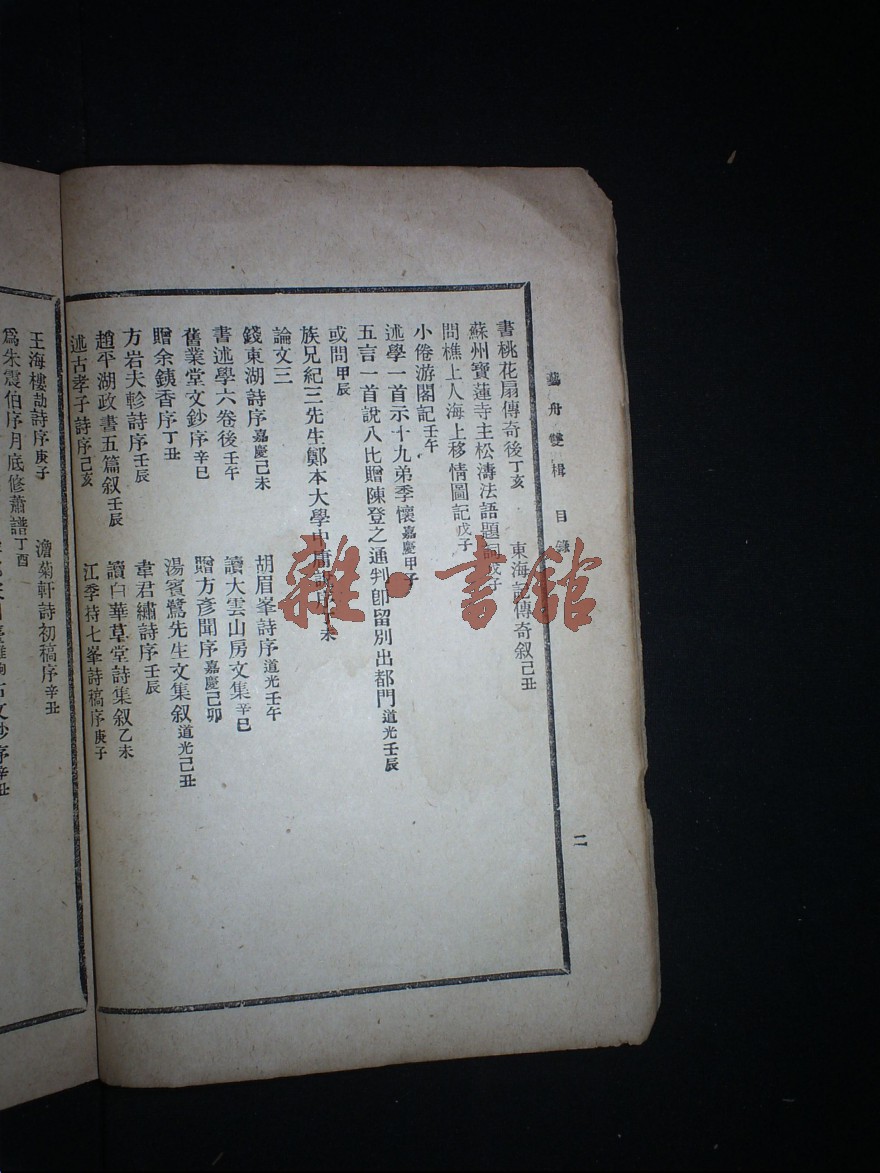 藝舟雙楫 目錄
二
書桃花扇傳奇後丁亥 東海記傳奇叙己丑
蘇州寶蓮寺主松濤法語題詞戊子
問樵上人海上移情圖記戊子
小倦游閣記壬午
述學一首示十九弟季懷嘉慶甲子
五言一首說八比贈陳登之通判卽留別出都門道光壬辰
或問甲辰
族兄紀三先生鄭本大學中庸說
論文三
錢東湖詩序嘉慶己未 胡眉峯詩序道光壬午
書述學六卷後壬午 讀大雲山房文集辛巳
舊業堂文鈔序辛巳 贈方彥聞序嘉慶己卯
贈余銕香序丁丑 湯賓鷺先生文集叙道光己丑
方岩夫軫詩序壬辰 韋君繡詩序壬辰
趙平湖政書五篇叙壬辰 讀白華草堂詩集叙乙未
述古孝子詩序己亥 江季持七峯詩稿序庚子
王海樓劫詩序庚子 澹菊軒詩初稿序辛丑
爲朱震伯序月底修蕭譜丁酉 古文鈔序辛丑
雜·書館